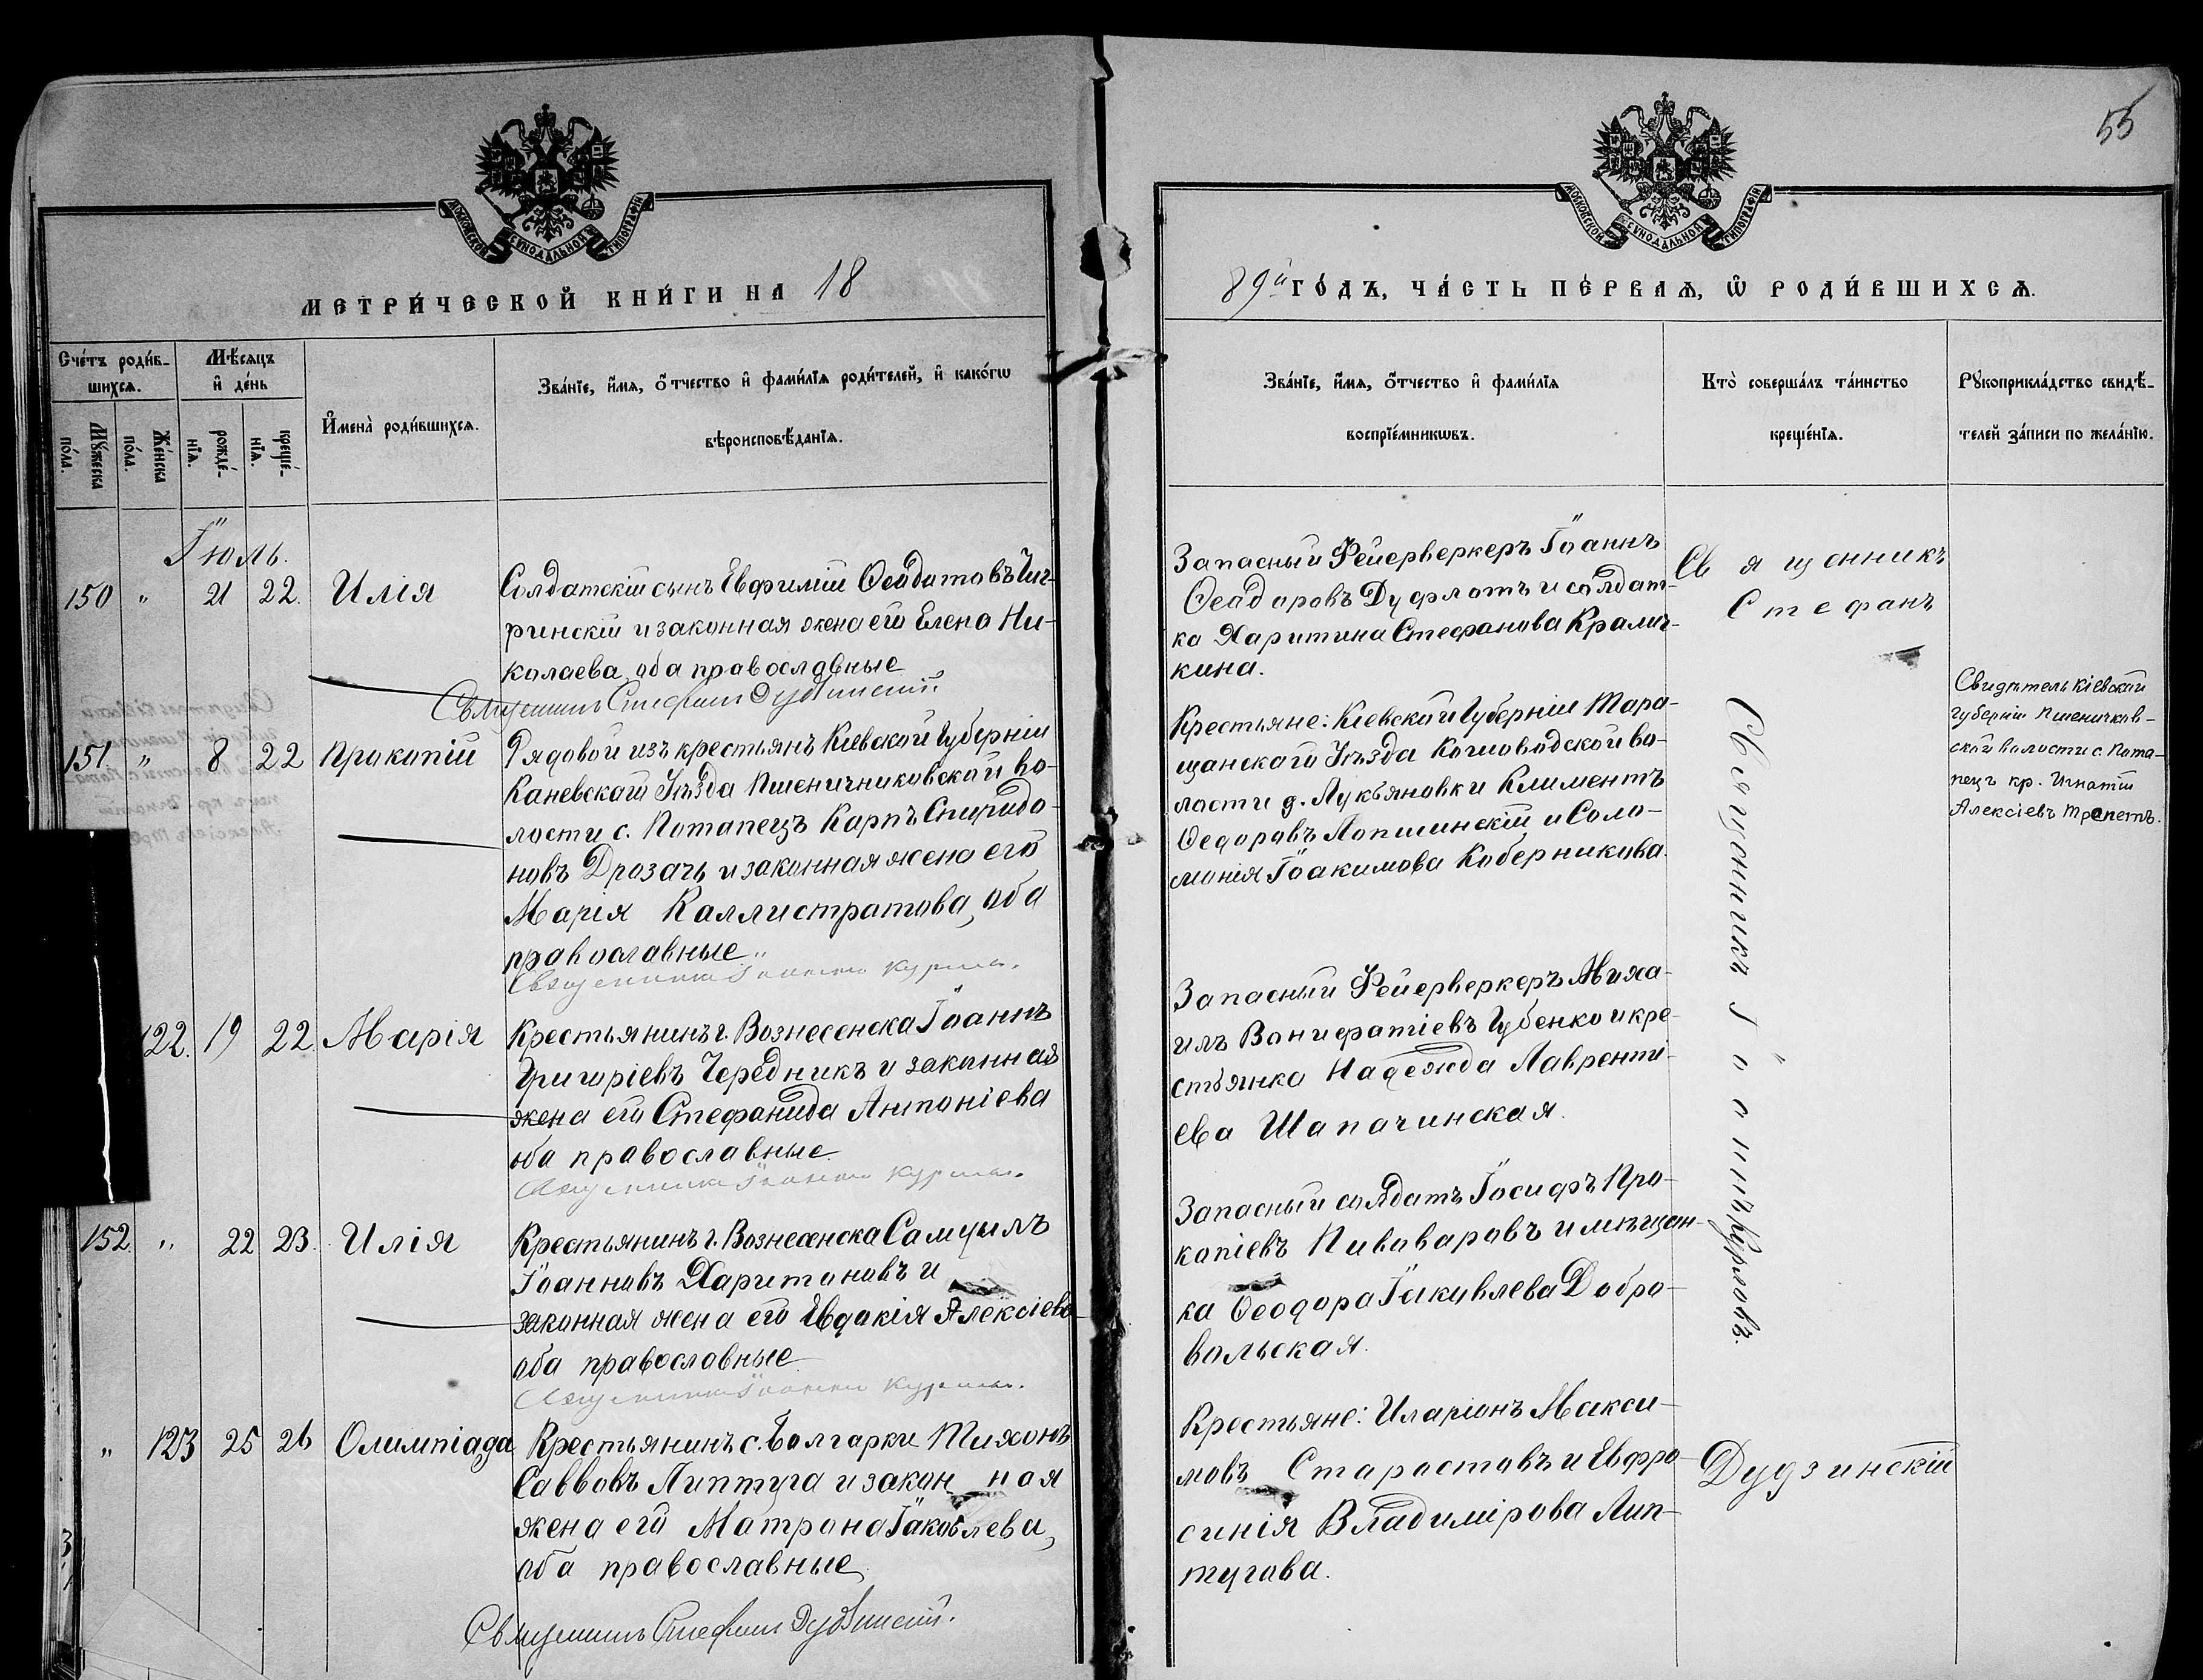 55
МОСКОВСКОЙ СѴНОДАЛЬНОЙ ТИПОГРАФІИ
МОСКОВСКОЙ СѴНОДАЛЬНОЙ ТИПОГРАФІИ
МЕТРИ́ЧЕСКОЙ КНИ́ГИ НА 18
89й ГО́ДЪ, ЧА́СТЬ ПЕ́РВАЯ, Ѡ РОДИ́ВШИХСЯ.
Сче́тъ роди́в-
шихся.
Мꙋ́жеска
по́ла.
Же́нска
по́ла.
Мѣ́сяцъ
и҆ де́нь
рожде́-
нїя.
креще́-
нїя.
И҆мена̀ роди́вшихся.
Зва́нїе, и҆́мя, о҆́тчество и҆ фами́лїя роди́телей, и҆ како́гѡ
вѣроисповѣ́данїя.
Зва́нїе, и҆́мя, о҆́тчество и҆ фами́лїя
воспрїе́мникѡвъ.
Кто̀ соверша́лъ та́инство
креще́нїя.
Рꙋкоприкла́дство свидѣ́-
телей за́писи по жела́нїю.
Іюль.
150 " 21 22. Илія
Солдатскій сынъ Евфимій Ѳеодотовъ Чиг-
ринскій и законная жена его Елена Ни-
колаева, оба православные
Священникъ Стефанъ Дудзинскій.
Запасный Фейерверкеръ Іоаннъ
Ѳеодоровъ Дуфлотъ и солдат-
ка Харитина Стефанова Кралич-
кина.
Священникъ
Стефанъ
151. " 8 22 Прокопій
Рядовой изъ крестьянъ Кіевской Губерніи
Каневскаго Уѣзда Пшеничниковской во-
лости с. Потапецъ Карпъ Спиридо-
новъ Дрозачъ и законная жена его
Марія Каллистратова, оба
православные.
Священникъ Іоаннъ
Крестьяне: Кіевской Губерніи Тара-
щанскаго Уѣзда Кошоводской во-
лости д. Лукьяновки Климентъ
Ѳедоровъ Лопшинскій и Соло-
монія Іоакимова Коберникова.
Священникъ Іоаннъ
Свидѣтель Кіевской
Губерніи Пшенички в-
ской волости с. Пота-
пецъ кр. Игнатій
Алексіевъ Трепетъ.
122. 19 22. Марія
Крестьянинъ г. Вознесенска Іоаннъ
Григоріевъ Чередникъ и законная
жена его Стефанида Антоніева
оба православные.
Священникъ Іоаннъ
Запасный Фейерверкеръ Миха-
илъ Вонифатіевъ Губенко и кре-
стьянка Надежда Лавренті-
ева Шапачинская.
152. " 22 23. Илія
Крестьянинъ г. Вознесенска Самуилъ
Іоанновъ Харитоновъ и
законная жена его Евдокія Алексіева
оба православные
Священникъ Іоаннъ
Запасный солдатъ Іосифъ Про-
копіевъ Пивоваровъ и мѣщан-
ка Ѳеодора Іаковлева Добро-
вольская.
" 123 25 26 Олимпіада
Крестьянинъ с. Болгарки Тихонъ
Саввовъ Липтуга и законная
жена его Матрона Іаковлева,
оба православные
Священникъ Стефанъ Дудзинскій.
Крестьяне: Иларіонъ Макси-
мовъ Старостовъ и Евфро-
синія Владимірова Лип-
тугова.
Дудзинскій